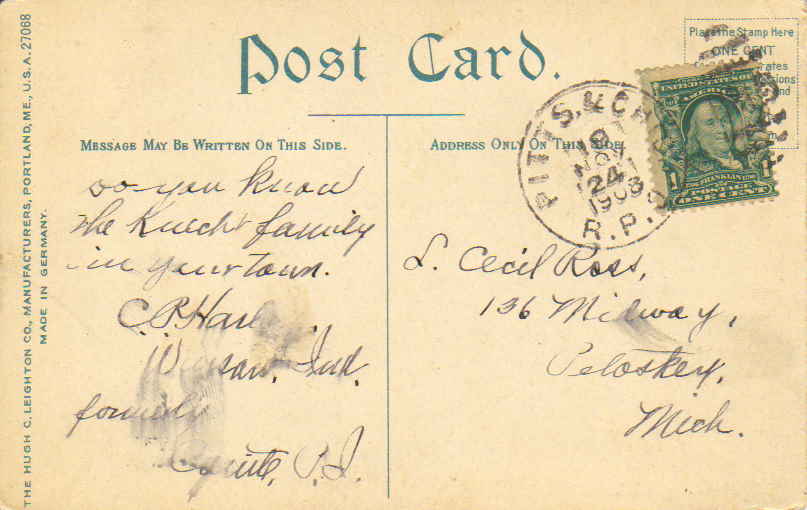 Post Card.
Place the Stamp Here
ONE CENT
MESSAGE MAY BE WRITTEN ON THIS SIDE.
ADDRESS ONLY ON THIS SIDE.
THE HUGH C. LEIGHTON CO., MANUFACTURERS, PORTLAND, ME., U.S.A. 27068
MADE IN GERMANY.
PITTS. & CHI
NOV
24
1908
R.P.O.
UNITED STATES OF
AMERICA
FRANKLIN
POSTAGE
1 ONE CENT 1
Do you know
the Knecht family
in your town.
C.P.
Warsaw, Ind.
formerly
Cavite, P.I.
L. Cecil Ross,
136 Midway,
Petoskey,
Mich.